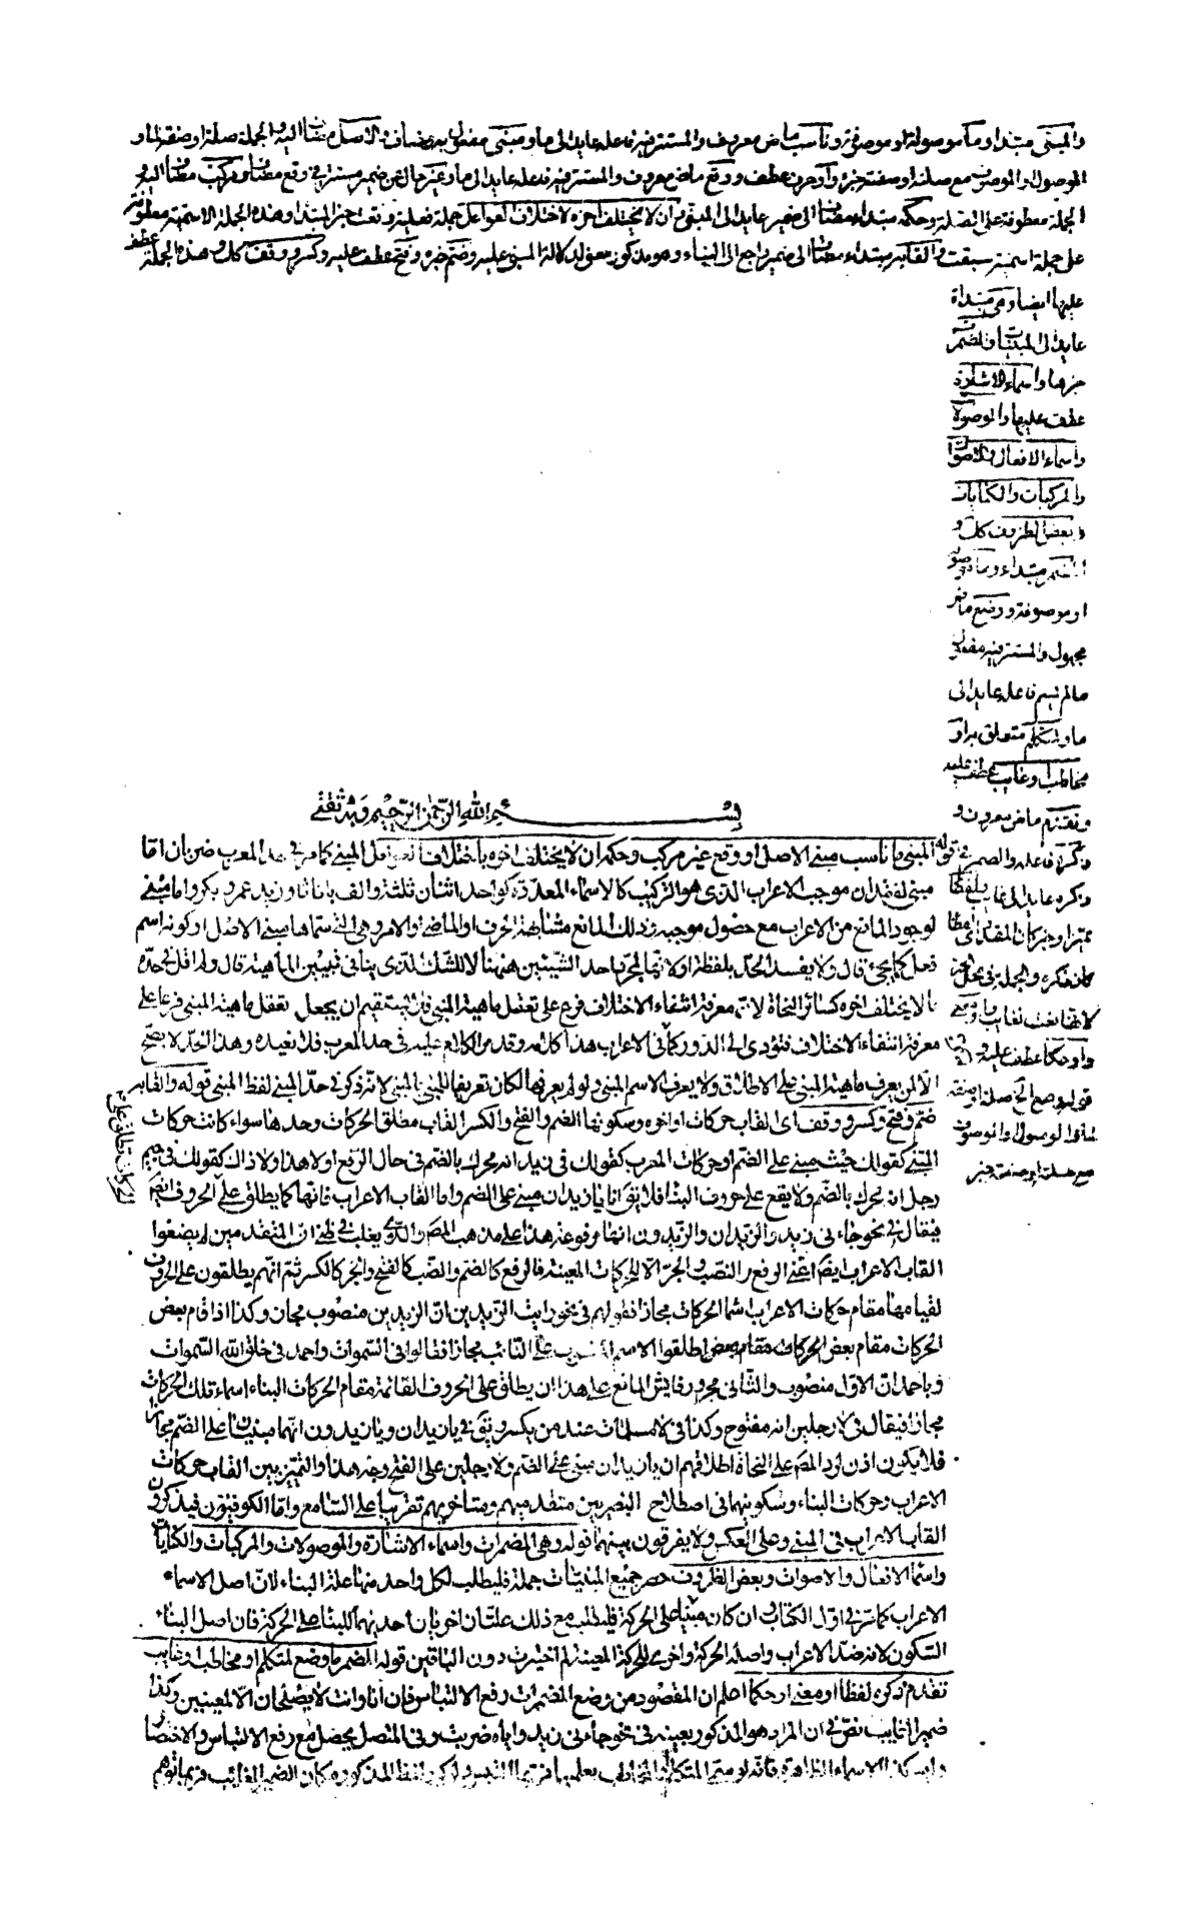 والمبنى مبتدا وما موصولة او موصوفة وناسب ماض معروف والمستتر فيه فاعله عايد الى ما ومبنى مفعول به مضاف والاصل مضاف اليه والجملة صلة او صفة لما و
الموصول والموصوف مع صلته او صفته خبره وآو حرف عطف ووقع ماض معروف والمستتر فيه فاعله عايد الى ما وغير حال عن ضمير مستتر في وقع مضاف ومركب مضاف اليه و
الجملة معطوفة على الصلة وحكمه مبتداء مضاف الى ضمير عايد الى المبنى وان لا يختلف آخره لاختلاف العوامل جملة فعلية وقعت خبر المبتدا وهذه الجملة الاسمية معطوفة
على جملة اسمية سبقت والقابه مبتداء مضاف الى ضمير راجع الى البناء وهو مذكور معنى لدلالة المبنى عليه وضم خبره وفتح عطف عليه وكسر ووقف كل وهذه الجملة عطف
عليها ايضا وهى مبتداة
عايد الى المبنيات والمضمر
خبرها واسماء الاشارة
عطف عليها والموصولا
واسماء الافعال والاصوا
والمركبات والكنايات
وبعض الظروف كل و
المضمر مبتداء وما موصو
او موصوفة ووضع ماض
مجهول والمستتر فيه مفعول
ما لم يسم فاعله عايد الى
ما ولمتكلم متعلق به او
مخاطب او غايب عطف عليه
وتقدم ماض معروف و
بسم الله الرحمن الرحيم وبه ثقتى
قوله المبنى ما ناسب مبنى الاصل او وقع غير مركب وحكمه ان لا يختلف اخره باختلاف العوامل المبنى كما مر فى حد المعرب ضربان اما
مبنى لفقدان موجب الاعراب الذى هو التركيب كالاسماء المعددة كواحد اثنان ثلثة والف با تا ثا وزيد عمرو بكر واما مبنى
لوجود المانع من الاعراب مع حصول موجبه وذلك المانع مشابهة الحرف او الماضى او الامر وهى التى سماها مبنى الاصل او كونه اسم
فعل كما يجئ قال ولا يفسد الحد بلفظة او لانها لمجرد احد الشيئين ههنا لا للشك الذى ينافى تبيين الماهية قال ولم اقل لحده
ما لا يختلف اخره كسائر النحاة لان معرفة انتفاء الاختلاف فرع على تعقل ماهية المبنى فلا يستقيم ان يجعل تعقل ماهية المبنى فرعا على
معرفة انتفاء الاختلاف فتؤدى الى الدور كما فى الاعراب هذا كلامه وقد مر الكلام عليه فى حد المعرب فلا نعيده وهذا الحد لا يصح
الا لمن يعرف ماهية المبنى على الاطلاق ولا يعرف الاسم المبنى ولو لم يعرفها لكان تعريفا للمبنى بالمبنى لانه ذكر فى حد المبنى لفظ المبنى قوله والقابه
ضم وفتح وكسر ووقف اى القاب حركات اواخره وسكونها الضم والفتح والكسر القاب مطلق الحركات وحدها سواء كانت حركات
المبنى كقولك حيث مبنى على الضم او حركات المعرب كقولك فى زيد انه محرك بالضم فى حال الرفع او لا هذا ولا ذاك كقولك فى جيم
رجل انه محرك بالضم ولا يقع على حروف البناء فلا يقال ان يا زيدان مبنى على الضم واما القاب الاعراب فانها كما يطلق على الحروف ايضا
فيقال فى نحو جاءنى زيد والزيدان والزيدون انها مرفوعة هذا على مذهب المصنف والذى يغلب فى ظنى ان المتقدمين لم يضعوا
القاب الاعراب ايضا اعنى الرفع والنصب والجر الا للحركات المعينة فالرفع كالضم والنصب كالفتح والجر كالكسر ثم انهم يطلقون على الحروف
لقيامها مقام حركات الاعراب اسماء الحركات مجازا فقولهم فى نحو رايت الزيدين ان الزيدين منصوب مجاز وكذا اذا قام بعض
الحركات مقام بعض الحركات مقام بعض اطلقوا الاسم المنوب على النائب مجازا فقالوا فى السموات واحمد فى خلق الله السموات
وباحمد ان الاول منصوب والثانى مجرور فايش المانع على هذا ان يطلق على الحروف القائمة مقام الحركات البناء اسماء تلك الحركات
مجازا فيقال فى لا رجلين انه مفتوح وكذا فى لا مسلمات عند من يكسر ويقال فى يا زيدان ويا زيدون انهما مبنيان على الضم مجازا
فلا يكون اذن لرد المصنف على النحاة اطلاقهم ان يا زيدان مبنى على الضم ولا رجلين على الفتح وجه هذا والتمييز بين القاب حركات
الاعراب وحركات البناء وسكونهما فى اصطلاح البصريين متقدميهم ومتاخريهم تقريبا على السامع واما الكوفيون فيذكرون
القاب الاعراب فى المبنى وعلى العكس ولا يفرقون بينهما قوله وهى المضمرات واسماء الاشارة والموصولات والمركبات والكنايات
واسماء الافعال والاصوات وبعض الظروف حصر جميع المبنيات جملة فليطلب لكل واحد منها علة البناء لان اصل الاسماء
الاعراب كما مر فى اول الكتاب وان كان مبنيا على الحركة فليطلب مع ذلك علتان اخريان احديهما للبناء على الحركة فان اصل البناء
السكون لانه ضد الاعراب واصله الحركة واخرى للحركة المعينة لم اختيرت دون الباقين قوله المضمر ما وضع لمتكلم او مخاطب او غايب
تقدم ذكره لفظا او معنى او حكما اعلم ان المقصود من وضع المضمرات رفع الالتباس فان انا وانت لا يصلحان الا لمعينين وكذا
ضمير الغايب نص فى ان المراد هو المذكور بعينه فى نحو جاءنى زيد واياه ضربت وفى المتصل يحصل مع رفع الالتباس والاختصار
وليس كذا الاسماء الظاهرة فانه لو سمى المتكلم والمخاطب بعلميهما فربما التبس ولو كرر لفظ المذكور مكان الضمير الغائب فربما توهم
وذكره فاعله والضمير فى
وذكره عايد الى الغايب ولفظا
تمييز او خبر كان المقدر اى لفظا
كان ذكره والجملة فى محل الجر
لانها نعت لغايب او معنى
او حكما عطف عليه